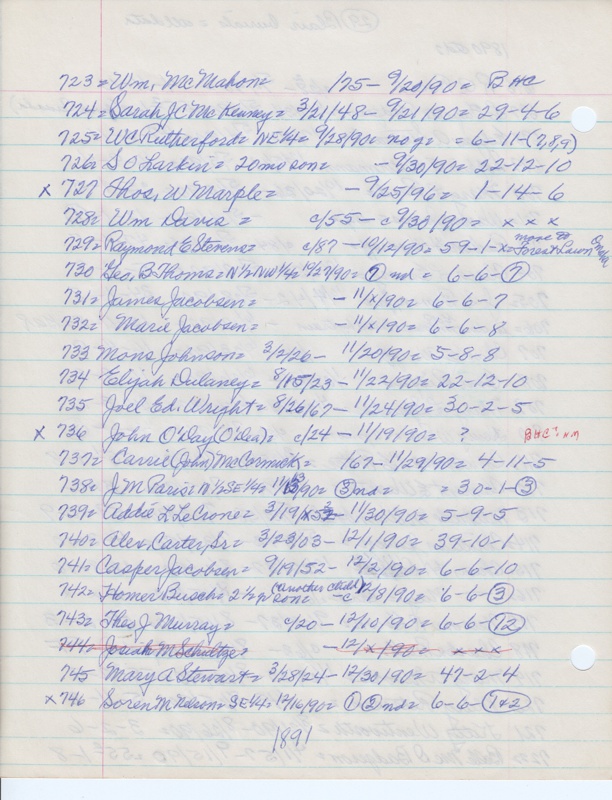 723 = Wm, McMahon = /75 - 9/20/90 = BHC
724 = Sarah JC McKenney = 3/21/48 - 9/21/90 = 29-4-6
725 = WC Rutherford = NE 1/4 = 9/28/90 = no g. = 6-11-(7,8,9)
726 = S O Larkin = 20 mo son = - 9/30/90 = 22-12-10
x 727 Thos, W Marple = - 9/25/96 = 1-14-6
728 = Wm Davis = c/55 - c 9/30/90 = x x x
729 = Raymond E Stevens = c/87 - 10/12/90 = 59-1-x = move to Forest Lawn Omaha
730 Geo, B Thoms = N 1/2 NW 1/4 = 10/27/90 = (1) nd = 6-6-(7)
731 = James Jacobsen = - 11/x/90 = 6-6-7
732 = Marie Jacobsen = - 11/x/90 = 6-6-8
733 Mons Johnson = 3/2/26 - 11/20/90 = 5-8-8
734 Elijah Dulaney = 8/15/23 - 11/22/90 = 22-12-10
735 Joel Ed. Wright = 8/26/67 - 11/24/90 = 30-2-5
x 736 John O'Day (O'Dea) = c/24 - 11/19/90 = ? BHC?
737 = Carrie (John) McCormick = /67 - 11/29/90 = 4-11-5
738 = J M Paris = N 1/2 SE 1/4 = 11/13/90 = (3) nd = = 30-1-(3)
739 = Addie L LeCrone = 3/19/52 - 11/30/90 = 5-9-5
740 = Alex, Carter, Sr. = 3/23/03 - 12/1/90 = 39-10-1
741 = Casper Jacobsen = 9/19/52 - 12/2/90 = 6-6-10
742 = Homer Busch = 2 1/2 yr son (another child) = - c 12/8/90 = 6-6-(3)
743 = Theo J Murray = c/20 - 12/10/90 = 6-6-(12)
744 = Josiah M Schultze = - 12/x/90 = x x x
745 Mary A Stewart = 3/28/24 - 12/30/90 = 47-2-4
x 746 Soren M Nelson = SE 1/4 = 12/16/90 = (1) (2) nd = 6-6-(1&2)
1891